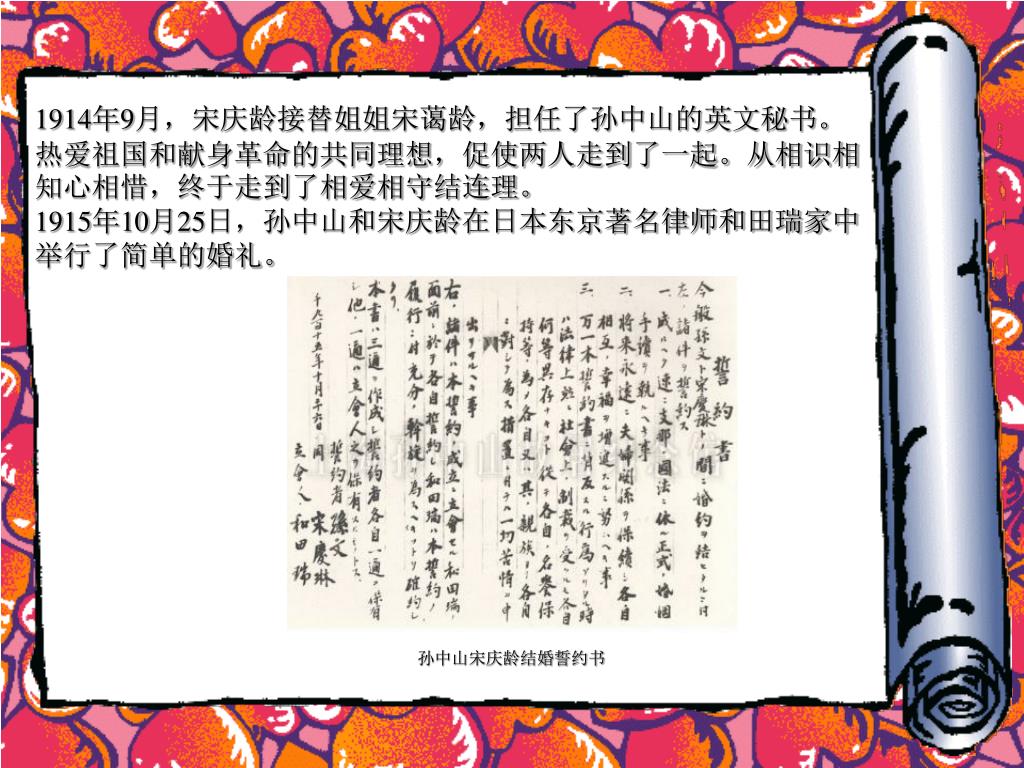 1914年9月，宋庆龄接替姐姐宋蔼龄，担任了孙中山的英文秘书。
热爱祖国和献身革命的共同理想，促使两人走到了一起。从相识相
知心相惜，终于走到了相爱相守结连理。
1915年10月25日，孙中山和宋庆龄在日本东京著名律师和田瑞家中
举行了简单的婚礼。
誓約書
今般孫文ト宋慶琳ト間ニ婚約ヲ結ヒタルニ付
左ノ諸件ヲ誓約ス
一、成ルヘク速ニ支那ノ國法ニ依ル正式ノ婚姻
手續ヲ執ルヘキ事
二、將來永遠ニ夫婦関係ヲ保續シ各自
相互ノ幸福ヲ増進スルニ努ムヘキ事
三、万一本誓約書ニ背反スル行為アリタル時
ハ法律上並ニ社會上ノ制裁ヲ受クルモ各自
何等異存ナキ而シテ各自ノ名譽保
持ノ為メ各自又ハ其ノ親族ヨリ各自
ニ對シ為ス措置ニ付テハ一切苦情ヲ申
出サルヘキ事
右ノ諸件ハ本誓約成立ニ立會セル和田瑞ノ
面前ニ於テ各自誓約シ和田瑞ハ本誓約ノ
履行ニ付充分ノ斡旋ヲ為スヘキコトヲ確約シ
タリ
本書ハ三通ヲ作成シ誓約者各自一通ヲ保有
シ他ノ一通ハ立會人之ヲ保有スルコトトス
千九百十五年十月二十六日
誓約者 孫文
同 宋慶琳
立會人 和田瑞
孙中山宋庆龄结婚誓约书